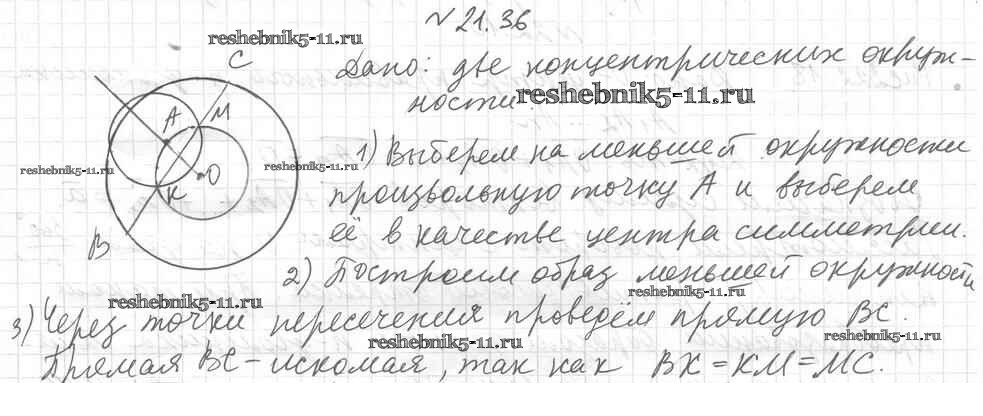 № 21.36
reshebnik5-11.ru
C
Дано: две концентрических окруж-
ности.
reshebnik5-11.ru
A M
1) Выберем на меньшей окружности
reshebnik5-11.ru
reshebnik5-11.ru
O
K
произвольную точку А и выберем
её в качестве центра симметрии.
B
2) Построим образ меньшей окружности
reshebnik5-11.ru
reshebnik5-11.ru
3) Через точки пересечения проведём прямую BC.
reshebnik5-11.ru
reshebnik5-11.ru
Прямая BC – искомая, так как BK = KM = MC.